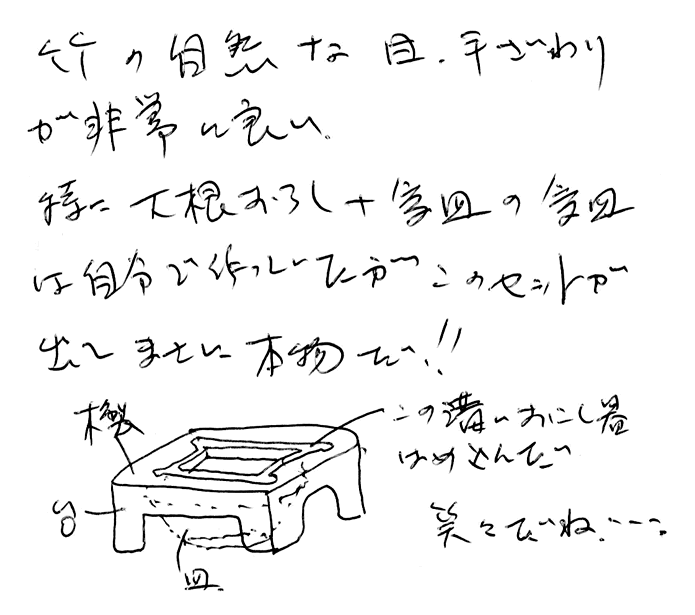 竹の自然な目、手ざわり
が非常に良い。
特に大根おろし+受皿の受皿
は自分で作っていたがこのセットが
出てまさに本物だ!!
木製
台
皿
この溝におろし器
はめ込んだ
笑々ですね…